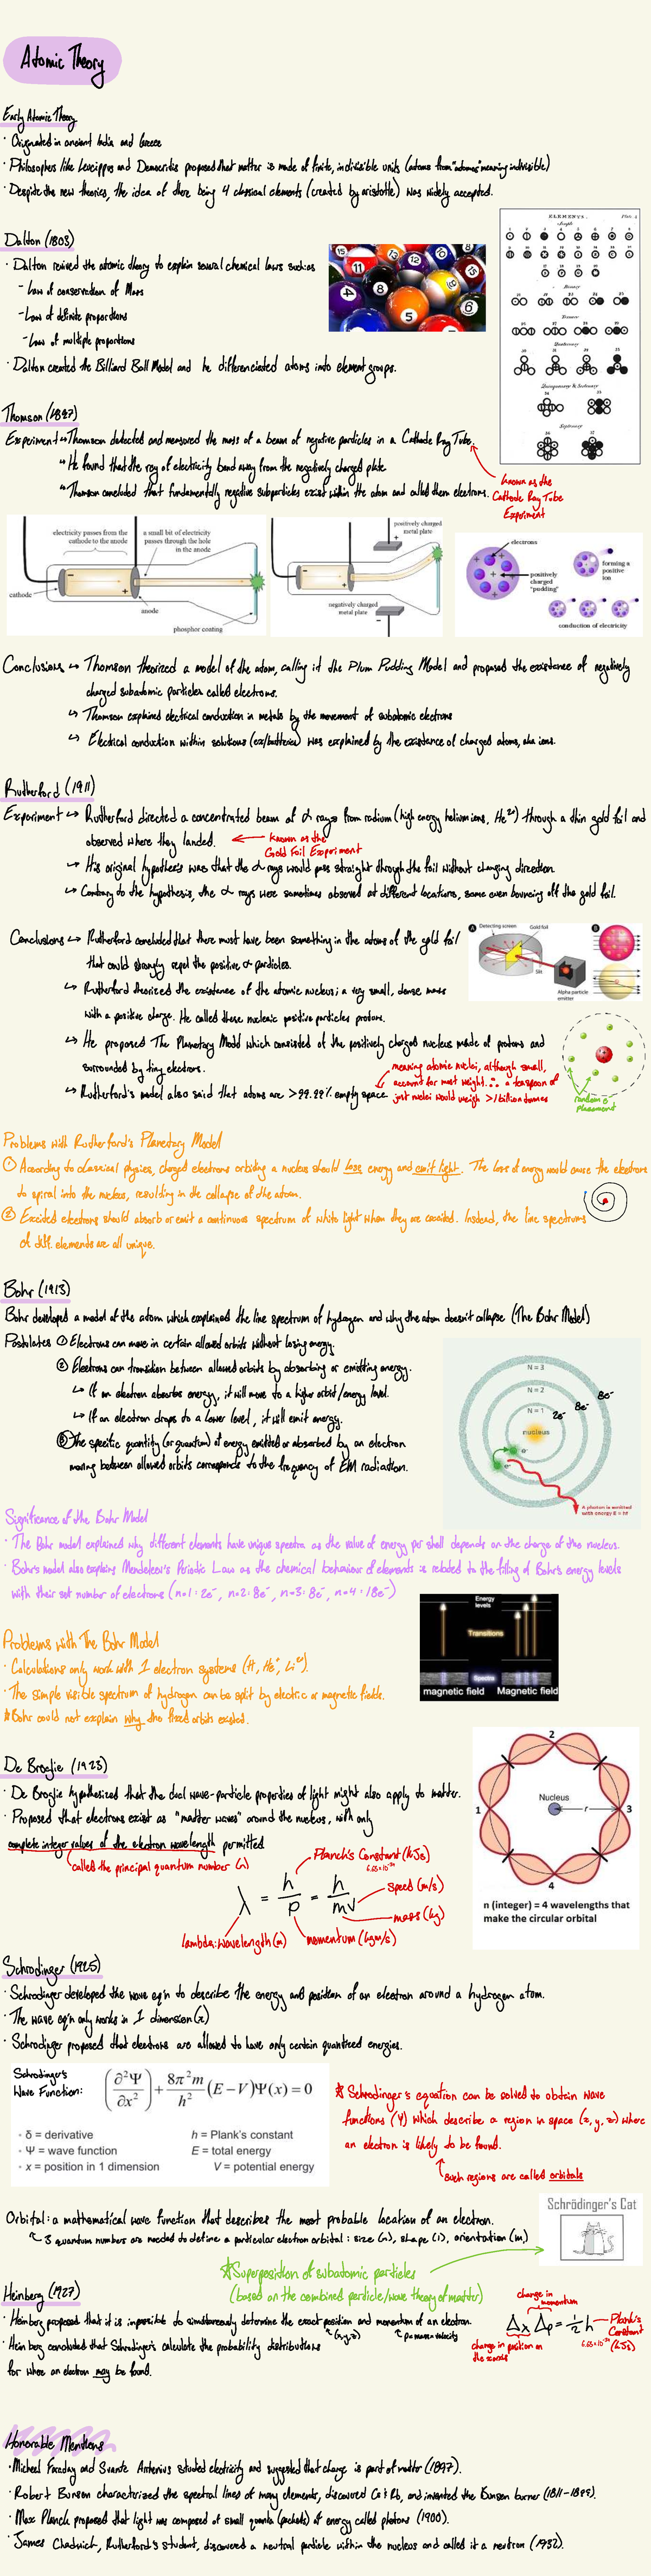 Atomic Theory
Early Atomic Theory
· Originated in ancient India and Greece
· Philosophers like Leucippus and Democritis proposed that matter is made of finite, indivisible units (atoms from "atomos" meaning indivisible)
· Despite the new theories, the idea of there being 4 classical elements (created by aristotle) was widely accepted.
ELEMENTS.
Simple
Binary
Ternary
Quaternary
Quinquenary & Sextenary
Septenary
Dalton (1803)
· Dalton revived the atomic theory to explain several chemical laws such as
- Law of conservation of Mass
- Law of definite proportions
- Law of multiple proportions
· Dalton created the Billiard Ball Model and he differenciated atoms into element groups.
Thomson (1897)
Experiment ↪ Thomson detected and measured the mass of a beam of negative particles in a Cathode Ray Tube.
↪ He found that the ray of electricity bend away from the negatively charged plate
↪ Thomson concluded that fundamentally negative subparticles exist within the atom and called them electrons.
known as the
Cathode Ray Tube
Experiment
electricity passes from the
cathode to the anode
a small bit of electricity
passes through the hole
in the anode
cathode
anode
phosphor coating
positively charged
metal plate
negatively charged
metal plate
electrons
positively
charged
"pudding"
forming a
positive
ion
conduction of electricity
Conclusions ↪ Thomson theorized a model of the atom, calling it the Plum Pudding Model and proposed the existance of negatively
charged subatomic particles called electrons.
↪ Thomson explained electrical conduction in metals by the movement of subatomic electrons
↪ Electrical conduction within solutions (ex/batteries) was explained by the existance of charged atoms, aka ions.
Rutherford (1911)
Experiment ↪ Rutherford directed a concentrated beam of α rays from radium (high energy helium ions, He²⁺) through a thin gold foil and
observed where they landed.
← known as the
Gold Foil Experiment
↪ His original hypothesis was that the α rays would pass straight through the foil without changing direction
↪ Contrary to the hypothesis, the α rays were sometimes observed at different locations, some even bouncing off the gold foil.
Conclusions ↪ Rutherford concluded that there must have been something in the atoms of the gold foil
that could strongly repel the positive α particles.
↪ Rutherford theorized the existance of the atomic nucleus; a very small, dense mass
with a positive charge. He called these nucleic positive particles protons.
↪ He proposed The Planetary Model which consisted of the positively charged nucleus made of protons and
surrounded by tiny electrons.
↪ Rutherford's model also said that atoms are >99.99% empty space
meaning atomic nuclei, although small,
account for most weight ∴ a teaspoon of
just nuclei would weigh >1 billion tonnes
A
Detecting screen
Gold foil
Slit
Alpha particle
emitter
B
random e⁻
placement
Problems with Rutherford's Planetary Model
① According to classical physics, charged electrons orbiting a nucleus should lose energy and emit light. The loss of energy would cause the electrons
to spiral into the nucleus, resulting in the collapse of the atom.
② Excited electrons should absorb or emit a continuous spectrum of white light when they are excited. Instead, the line spectrums
of diff. elements are all unique.
Bohr (1913)
Bohr developed a model of the atom which explained the line spectrum of hydrogen and why the atom doesn't collapse (The Bohr Model)
Postulates ① Electrons can move in certain allowed orbits without losing energy.
② Electrons can transition between allowed orbits by absorbing or emitting energy.
↪ If an electron absorbs energy, it will move to a higher orbit/energy level.
↪ If an electron drops to a lower level, it will emit energy.
③ The specific quantity (or quantum) of energy emitted or absorbed by an electron
moving between allowed orbits corresponds to the frequency of EM radiation.
N = 3
N = 2
N = 1
2e⁻
8e⁻
8e⁻
nucleus
e⁻
e⁻
A photon is emitted
with energy E = hf
Significance of the Bohr Model
· The Bohr model explained why different elements have unique spectra as the value of energy per shell depends on the charge of the nucleus.
· Bohr's model also explains Mendeleev's Periodic Law as the chemical behaviour of elements is related to the filling of Bohr's energy levels
with their set number of electrons (n=1: 2e⁻, n=2: 8e⁻, n=3: 8e⁻, n=4: 18e⁻)
Problems with The Bohr Model
· Calculations only work with 1 electron systems (H, He⁺, Li²⁺).
· The simple visible spectrum of hydrogen can be split by electric or magnetic fields.
* Bohr could not explain why the fixed orbits existed.
Energy
levels
Transitions
Spectra
magnetic field
Magnetic field
De Broglie (1923)
· De Broglie hypothesized that the dual wave-particle properties of light might also apply to matter.
· Proposed that electrons exist as "matter waves" around the nucleus, with only
complete integer values of the electron wavelength permitted
called the principal quantum number (n)
λ = h/p = h/mv
Planck's Constant (kJs)
6.63×10⁻³⁴
speed (m/s)
mass (kg)
momentum (kgm/s)
lambda: wavelength (m)
2
1
Nucleus
r
3
4
n (integer) = 4 wavelengths that
make the circular orbital
Schrodinger (1925)
· Schrodinger developed the wave eq'n to describe the energy and position of an electron around a hydrogen atom.
· The wave eq'n only works in 1 dimension (x)
· Schrodiger proposed that electrons are allowed to have only certain quantized energies.
Schrodinger's
Wave Function:
(∂²Ψ/∂x²) + 8π²m/h² (E − V)Ψ(x) = 0
δ = derivative
h = Plank's constant
Ψ = wave function
E = total energy
x = position in 1 dimension
V = potential energy
* Schrodinger's equation can be solved to obtain wave
functions (Ψ) which describe a region in space (x, y, z) where
an electron is likely to be found.
such regions are called orbitals
Orbital: a mathematical wave function that describes the most probable location of an electron.
3 quantum numbers are needed to define a particular electron orbital: size (n), shape (l), orientation (m)
Schrödinger's Cat
*Superposition of subatomic particles
(based on the combined particle/wave theory of matter)
Heinberg (1927)
· Heinberg proposed that it is impossible to simultaneously determine the exact position and momentum of an electron
(x,y,z)
p=mass×velocity
· Heinberg concluded that Schrodinger's calculate the probability distributions
for where an electron may be found.
change in
momentum
Δx Δp = ½ h
Plank's
Constant
6.63×10⁻³⁴ (kJs)
change in position on
the x axis
Honorable Mentions
· Micheal Faraday and Svante Arrhenius studied electricity and suggested that charge is part of matter (1897).
· Robert Bunson characterized the spectral lines of many elements, discovered Cs & Rb, and invented the Bunson burner (1811-1899).
· Max Planck proposed that light was composed of small quanta (packets) of energy called photons (1900).
· James Chadwick, Rutherford's student, discovered a neutral particle within the nucleus and called it a neutron (1932).